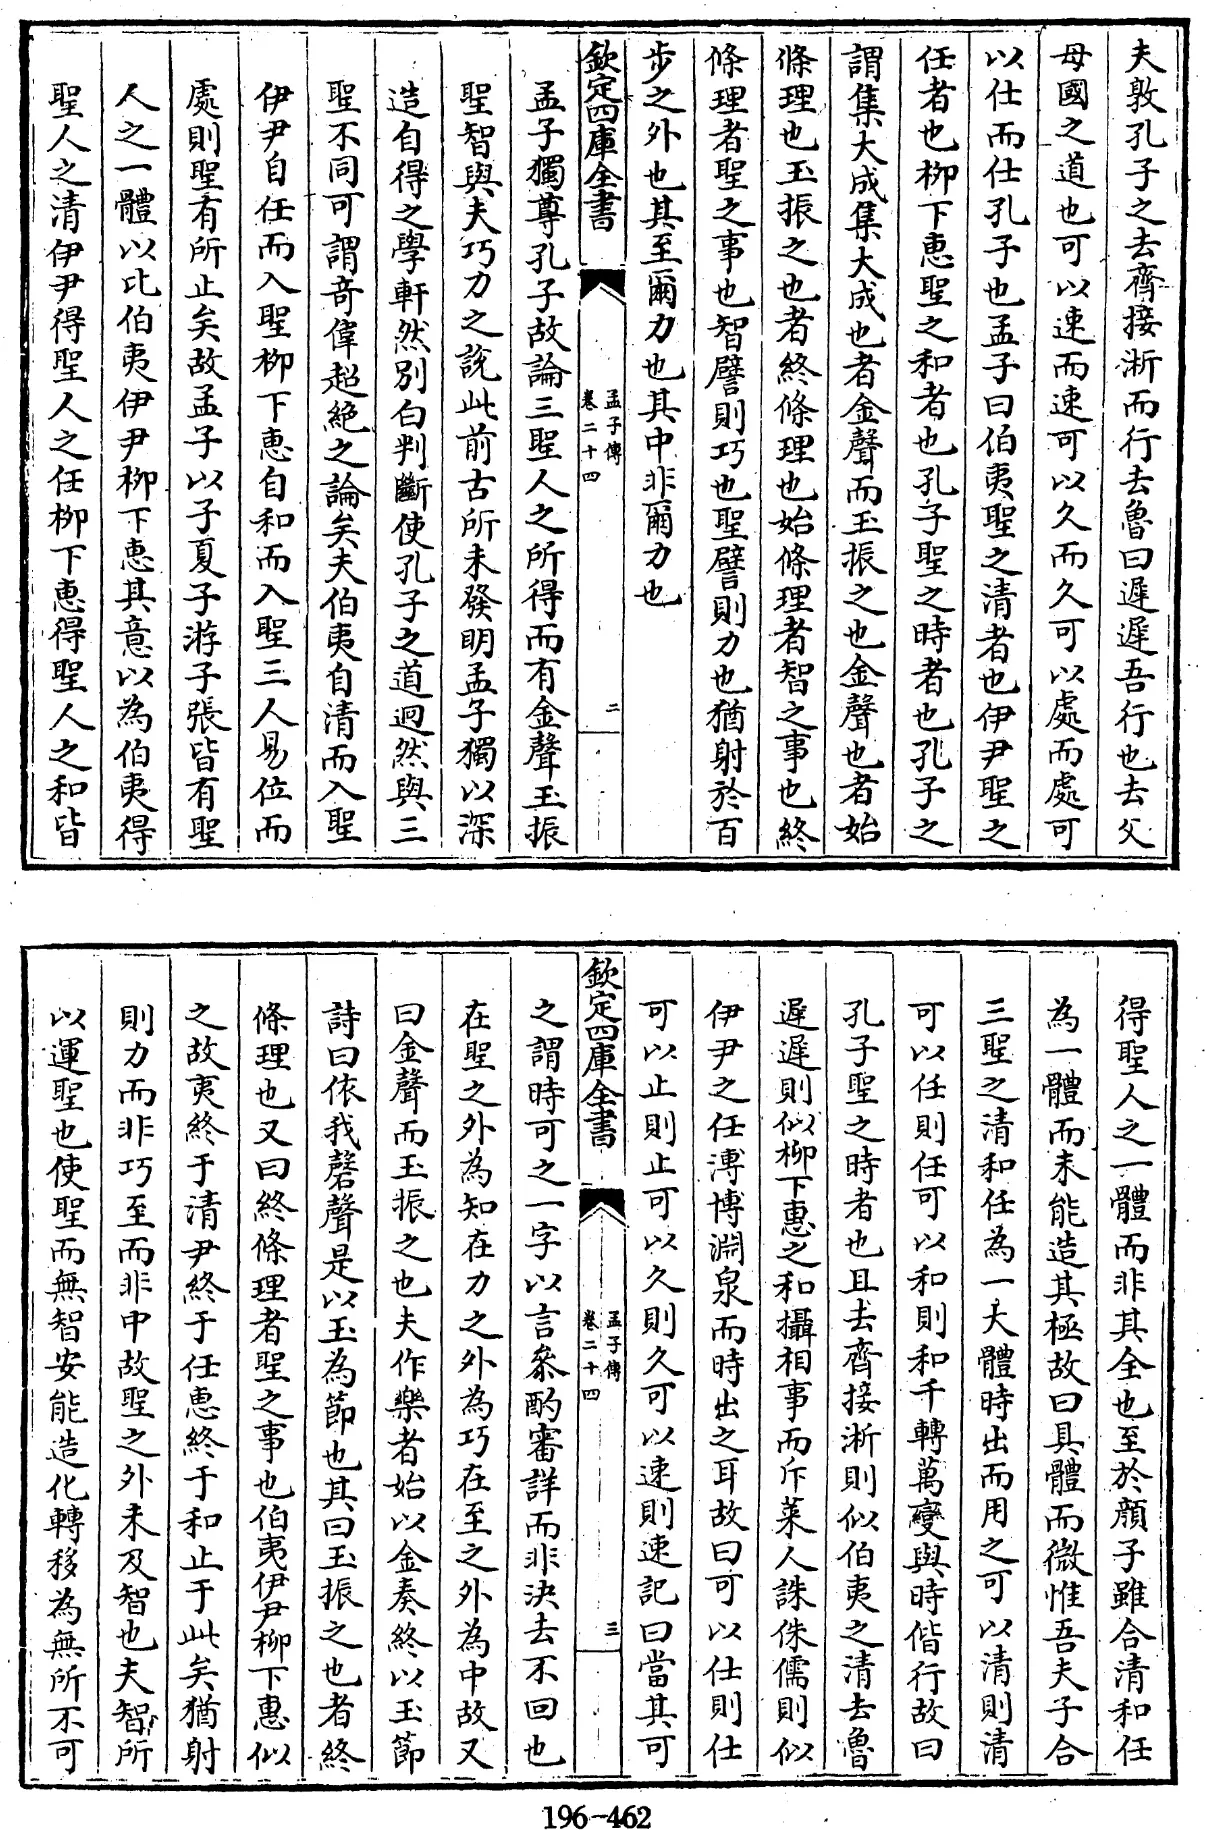 夫敦孔子之去齊接淅而行去魯曰遲遲吾行也去父
母國之道也可以速而速可以久而久可以處而處可
以仕而仕孔子也孟子曰伯夷聖之清者也伊尹聖之
任者也柳下惠聖之和者也孔子聖之時者也孔子之
謂集大成集大成也者金聲而玉振之也金聲也者始
條理也玉振之也者終條理也始條理者智之事也終
條理者聖之事也智譬則巧也聖譬則力也猶射於百
步之外也其至爾力也其中非爾力也
欽定四庫全書
孟子傳
卷二十四
二
孟子獨尊孔子故論三聖人之所得而有金聲玉振
聖智與夫巧力之說此前古所未發明孟子獨以深
造自得之學軒然別白判斷使孔子之道迥然與三
聖不同可謂竒偉超絶之論矣夫伯夷自清而入聖
伊尹自任而入聖柳下惠自和而入聖三人易位而
處則聖有所止矣故孟子以子夏子游子張皆有聖
人之一體以比伯夷伊尹柳下惠其意以為伯夷得
聖人之清伊尹得聖人之任柳下惠得聖人之和皆
得聖人之一體而非其全也至於顔子雖合清和任
為一體而未能造其極故曰具體而微惟吾夫子合
三聖之清和任為一大體時出而用之可以清則清
可以任則任可以和則和千轉萬變與時偕行故曰
孔子聖之時者也且去齊接淅則似伯夷之清去魯
遲遲則似柳下惠之和攝相事而斥萊人誅侏儒則似
伊尹之任溥博淵泉而時出之耳故曰可以仕則仕
可以止則止可以久則久可以速則速記曰當其可
欽定四庫全書
孟子傳
卷二十四
三
之謂時可之一字以言叅酌審詳而非決去不回也
在聖之外為知在力之外為巧在至之外為中故又
曰金聲而玉振之也夫作樂者始以金奏終以玉節
詩曰依我磬聲是以玉為節也其曰玉振之也者終
條理也又曰終條理者聖之事也伯夷伊尹柳下惠似
之故夷終于清尹終于任惠終于和止于此矣猶射
則力而非巧至而非中故聖之外未及智也夫智所
以運聖也使聖而無智安能造化轉移為無所不可
196-462